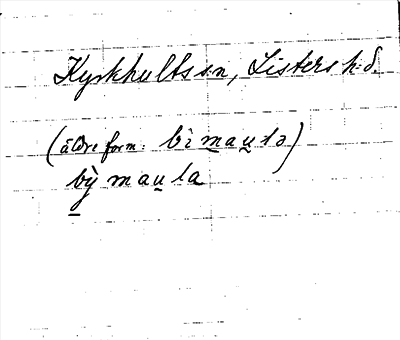 Kyrkhults s:n, Listers h:d.
(äldre form: bì mau̯lə)
bỳ mau̯la